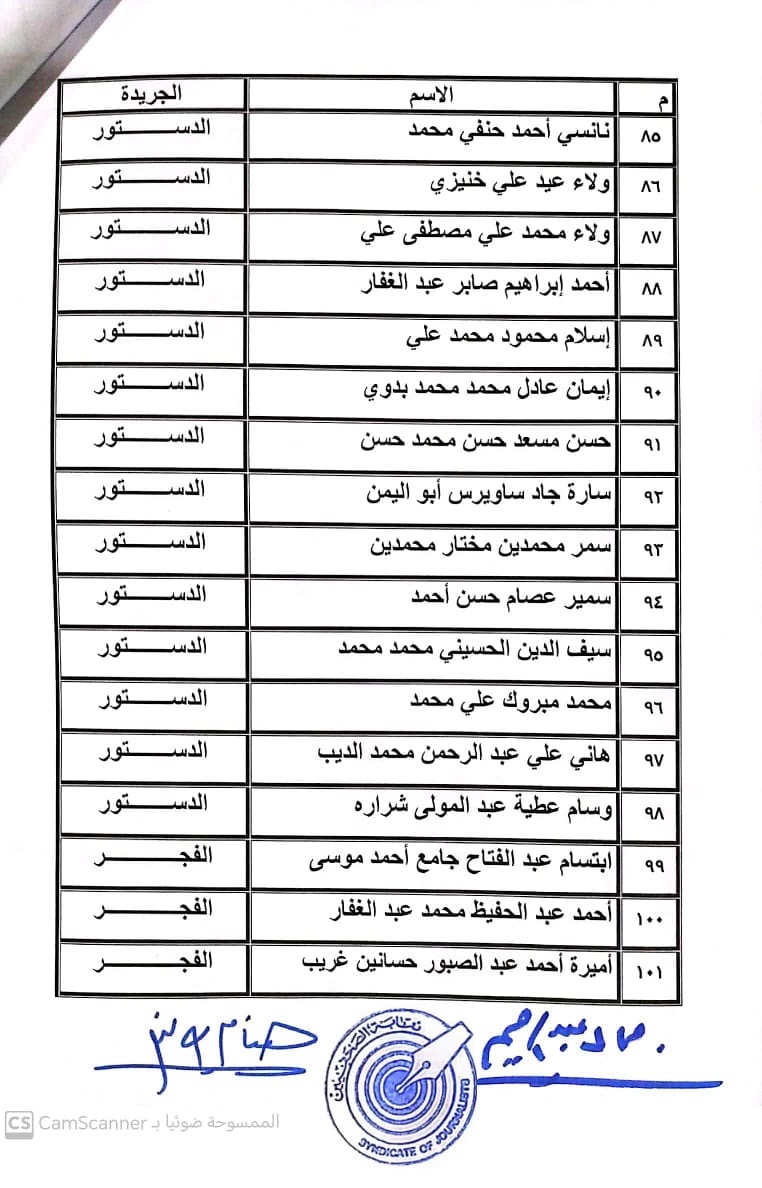 م الاسم الجريدة
٨٥ نانسي أحمد حنفي محمد الدســـــتور
٨٦ ولاء عيد علي خنيزي الدســـــتور
٨٧ ولاء محمد علي مصطفى علي الدســـــتور
٨٨ أحمد إبراهيم صابر عبد الغفار الدســـــتور
٨٩ إسلام محمود محمد علي الدســـــتور
٩٠ إيمان عادل محمد محمد بدوي الدســـــتور
٩١ حسن مسعد حسن محمد حسن الدســـــتور
٩٢ سارة جاد ساويرس أبو اليمن الدســـــتور
٩٣ سمر محمدين مختار محمدين الدســـــتور
٩٤ سمير عصام حسن أحمد الدســـــتور
٩٥ سيف الدين الحسيني محمد محمد الدســـــتور
٩٦ محمد مبروك علي محمد الدســـــتور
٩٧ هاني علي عبد الرحمن محمد الديب الدســـــتور
٩٨ وسام عطية عبد المولى شراره الدســـــتور
٩٩ ابتسام عبد الفتاح جامع أحمد موسى الفجـــــــر
١٠٠ أحمد عبد الحفيظ محمد عبد الغفار الفجـــــــر
١٠١ أميرة أحمد عبد الصبور حسانين غريب الفجـــــــر
نقابة الصحفيين
SYNDICATE OF JOURNALISTS
الممسوحة ضوئيا بـ CamScanner
CS